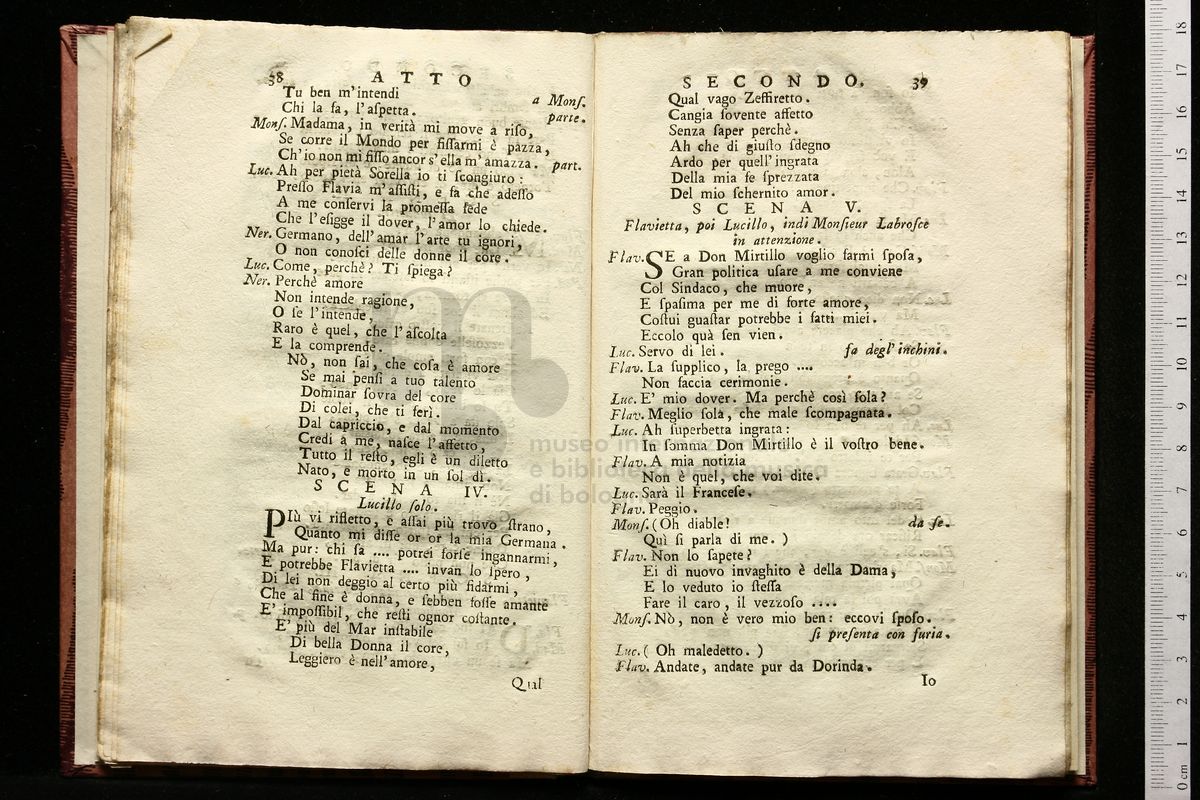 38 ATTO
Tu ben m'intendi
Chi la fa, l'aſpetta. a Monſ.
parte.
Monſ. Madama, in verità mi move a riſo,
Se corre il Mondo per fiſſarmi è pazza,
Ch'io non mi fiſſo ancor s'ella m'amazza. part.
Luc. Ah per pietà Sorella io ti ſcongiuro:
Preſſo Flavia m'aſſiſti, e fa che adeſſo
A me conſervi la promeſſa fede
Che l'eſigge il dover, l'amor lo chiede.
Ner. Germano, dell'amar l'arte tu ignori,
O non conoſci delle donne il core.
Luc. Come, perchè? Ti ſpiega?
Ner. Perchè amore
Non intende ragione,
O ſe l'intende,
Raro è quel, che l'aſcolta
E la comprende.
Nò, non ſai, che coſa è amore
Se mai penſi a tuo talento
Dominar ſovra del core
Di colei, che ti ferì.
Dal capriccio, e dal momento
Credi a me, naſce l'affetto,
Tutto il reſto, egli è un diletto
Nato, e morto in un ſol dì.
SCENA IV.
Lucillo ſolo.
PIù vi rifletto, e aſſai più trovo ſtrano,
Quanto mi diſſe or or la mia Germana.
Ma pur: chi ſa .... potrei forſe ingannarmi,
E potrebbe Flavietta .... invan lo ſpero,
Di lei non deggio al certo più fidarmi,
Che al fine è donna, e ſebben foſſe amante
E' impoſſibil, che reſti ognor coſtante.
E' più del Mar inſtabile
Di bella Donna il core,
Leggiero è nell'amore,
Qual
SECONDO. 39
Qual vago Zeffiretto.
Cangia ſovente affetto
Senza ſaper perchè.
Ah che di giuſto ſdegno
Ardo per quell'ingrata
Della mia fe ſprezzata
Del mio ſchernito amor.
SCENA V.
Flavietta, poi Lucillo, indi Monſieur Labroſce
in attenzione.
Flav. SE a Don Mirtillo voglio farmi ſpoſa,
Gran politica uſare a me conviene
Col Sindaco, che muore,
E ſpaſima per me di forte amore,
Coſtui guaſtar potrebbe i fatti miei.
Eccolo quà ſen vien.
Luc. Servo di lei. fa degl'inchini.
Flav. La ſupplico, la prego ....
Non faccia cerimonie.
Luc. E' mio dover. Ma perchè così ſola?
Flav. Meglio ſola, che male ſcompagnata.
Luc. Ah ſuperbetta ingrata:
In ſomma Don Mirtillo è il voſtro bene.
Flav. A mia notizia
Non è quel, che voi dite.
Luc. Sarà il Franceſe.
Flav. Peggio.
Monſ. (Oh diable! da ſe.
Quì ſi parla di me.)
Flav. Non lo ſapete?
Ei di nuovo invaghito è della Dama,
E lo veduto io ſteſſa
Fare il caro, il vezzoſo ....
Monſ. Nò, non è vero mio ben: eccovi ſpoſo.
ſi preſenta con furia.
Luc. (Oh maledetto.)
Flav. Andate, andate pur da Dorinda.
Io
museo internazionale
e biblioteca della musica
di bolo
0 cm 1 2 3 4 5 6 7 8 9 10 11 12 13 14 15 16 17 18